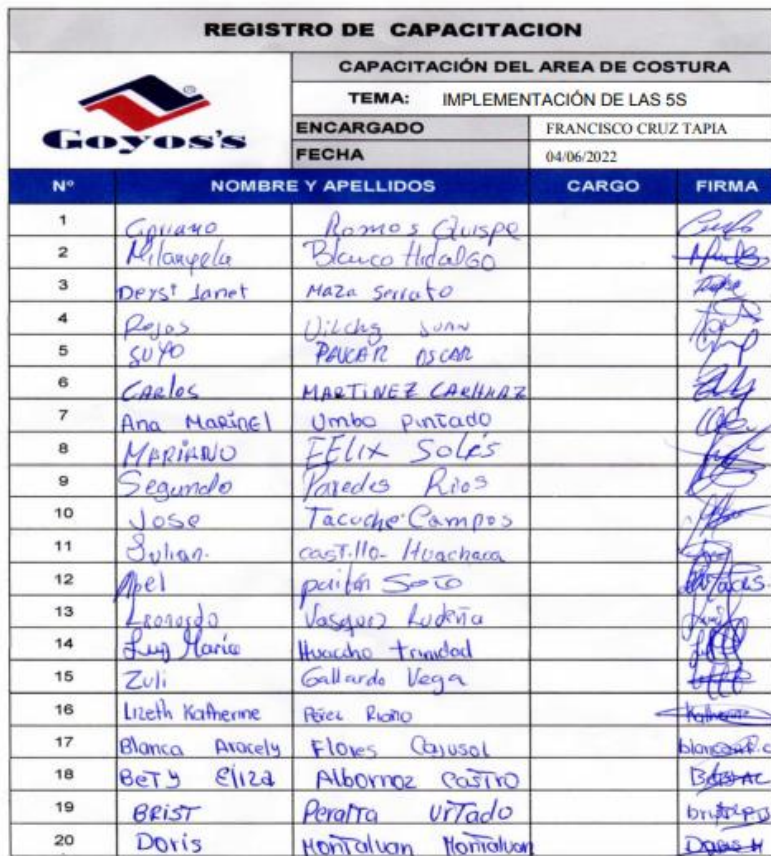 REGISTRO DE CAPACITACION
CAPACITACIÓN DEL AREA DE COSTURA
TEMA: IMPLEMENTACIÓN DE LAS 5S
Goyos's
ENCARGADO FRANCISCO CRUZ TAPIA
FECHA 04/06/2022
N° NOMBRE Y APELLIDOS CARGO FIRMA
1 Cipriano Romos Quispe
2 Milangela Blanco HidalGO
3 Deysi Janet Maza Serrato
4 Rojas Vilchg JUAN
5 SUYO PAUCAR OSCAR
6 CARlos MARTINEZ CARHUAZ
7 Ana MaRinel Umbo Pintado
8 MARIANO FELIX Solis
9 Segundo Paredes Rios
10 Jose Tacuche Campos
11 Julian. castillo- Huachaca
12 Abel Soto
13 Leonardo Vasquez Ludeña
14 Luz Maria Huaccho trinidad
15 Zuli Gallardo Vega
16 Lizeth Katherine Pérez Riaño Katherine
17 Blanca Aracely Flores Cajusol
18 BeTy Eliza Albornoz CasTro
19 BRIST PeralTa UrTado
20 Doris MonTalvan MonTalvan Doris M